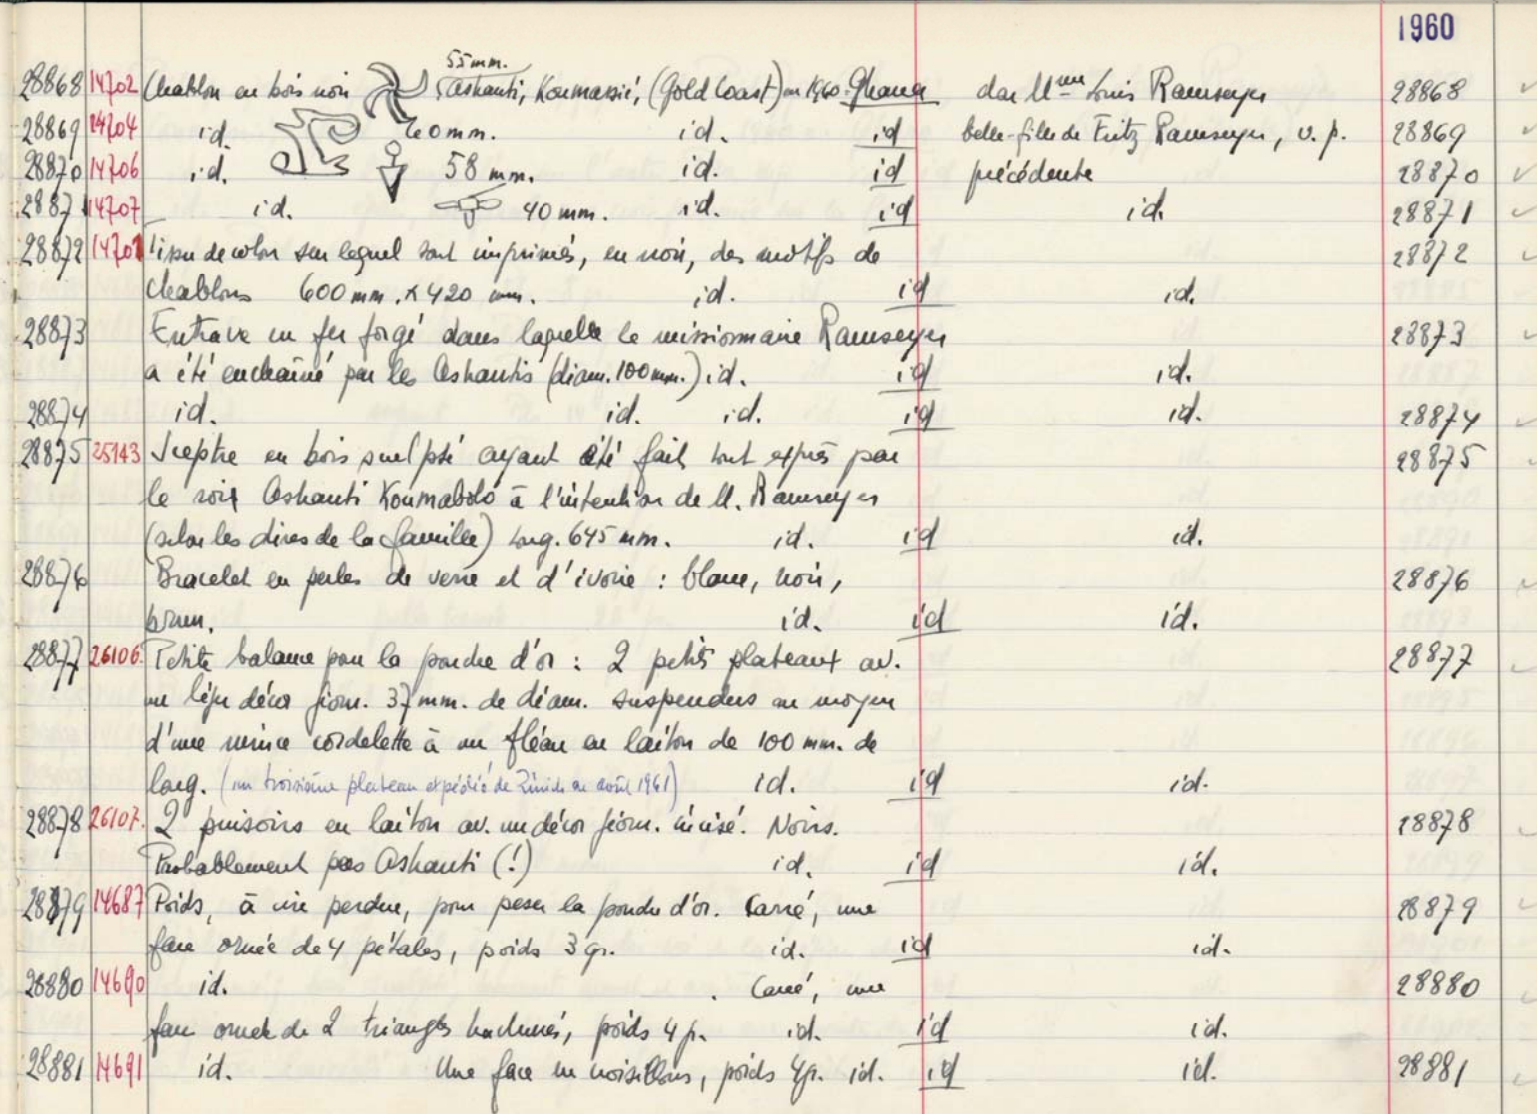 1960
55 mm.
28868 14702 Chablon en bois noir Ashanti, Koumassié, (Gold Coast) en 1960 Ghana don Mme Louis Ramseyer 28868
28869 14704 id. 60 mm. id. id belle-fille de Fritz Ramseyer, v. p. 28869
28870 14706 id. 58 mm. id. id précédente 28870
28871 14707 id. 40 mm. id. id id. 28871
28872 14701 Tissu de coton sur lequel sont imprimés, en noir, des motifs de 28872
chablons 600 mm. x 420 mm. id. id id.
28873 Entrave en fer forgé dans laquelle le missionnaire Ramseyer 28873
a été enchaîné par les Ashantis (diam. 100 mm.) id. id id.
28874 id. id. id. id id. 28874
28875 25143 Sceptre en bois sculpté ayant été fait tout exprès par 28875
le roi Ashanti à l'intention de M. Ramseyer
(selon les dires de la famille) long. 645 mm. id. id id.
28876 Bracelet en perles de verre et d'ivoire : blanc, noir, 28876
brun. id. id id.
28877 26106. Petite balance pour la poudre d'or : 2 petits plateaux av. 28877
un léger décor géom. 37 mm. de diam. suspendus au moyen
d'une mince cordelette à un fléau en laiton de 100 mm. de
long. (un troisième plateau expédié de Zürich en août 1961) id. id id.
28878 26107. 2 puisoirs en laiton av. un décor géom. incisé. Noirs. 28878
Probablement pas Ashanti (!) id. id id.
28879 14687 Poids, à cire perdue, pour peser la poudre d'or. Carré, une 28879
face ornée de 4 pétales, poids 3 gr. id. id id.
28880 14690 id. . Carré, une 28880
face ornée de 2 triangles hachurés, poids 4 gr. id. id id.
28881 14691 id. Une face en croisillons, poids 4 gr. id. id id. 28881